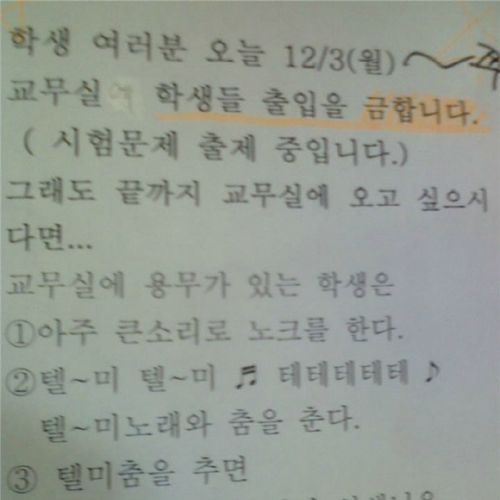 학생 여러분 오늘 12/3(월)~
교무실에 학생들 출입을 금합니다.
( 시험문제 출제 중입니다.)
그래도 끝까지 교무실에 오고 싶으시
다면...
교무실에 용무가 있는 학생은
①아주 큰소리로 노크를 한다.
②텔~미 텔~미 ♬ 테테테테테 ♪
텔~미노래와 춤을 춘다.
③ 텔미춤을 추면